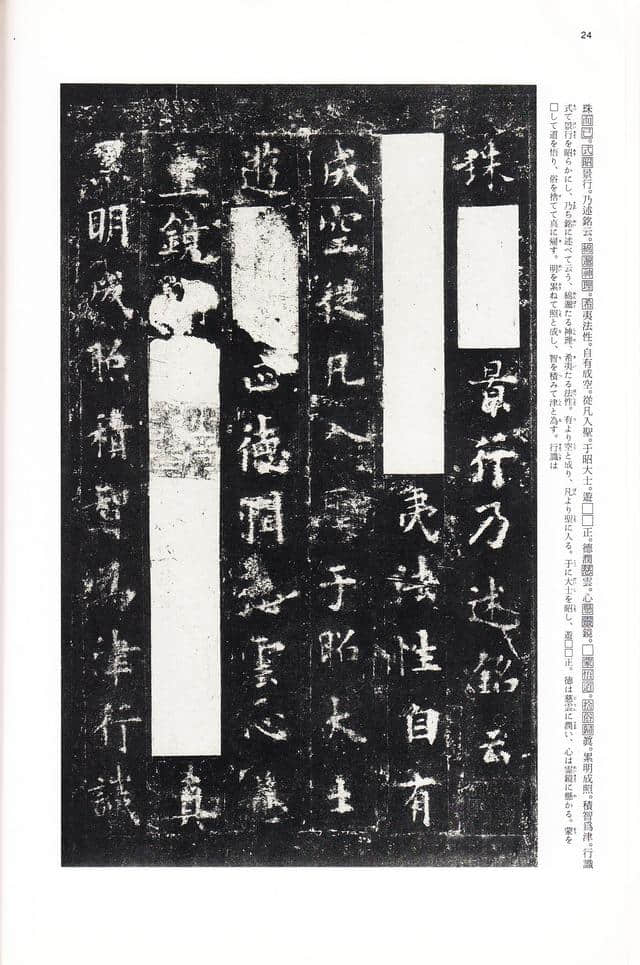 24
珠而已。式昭景行。乃述銘云。綿邈神理。希夷法性。自有成空。從凡入聖。于昭大士。遊□□正。德潤慈雲。心懸靈鏡。□蒙悟道。捨俗歸眞。累明成照。積智爲津。行識
式て景行を昭らかにし、乃ち銘に述べて云う、綿邈たる神理、希夷たる法性。有より空と成り、凡より聖に入る。于に大士を昭し、遊□□正。徳は慈雲に潤い、心は霊鏡に懸かる。蒙を
□して道を悟り、俗を捨てて真に帰す。明を累ねて照と成し、智を積みて津と為す。行識は
珠 景行乃述銘云
夷法性自有
成空從凡入聖于昭大士
遊 正德潤慈雲心懸
靈鏡 真
累明成照積智為津行識